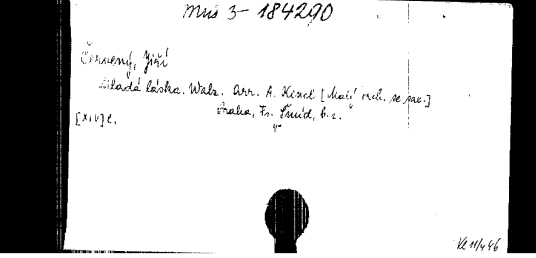 Mus 3-184290
Červený, Jiří
Mladá láska. Walz. Arr. A. [Malý orch. se sax.]
Praha, Fr. Šmíd, b.r.
[XIV] c.